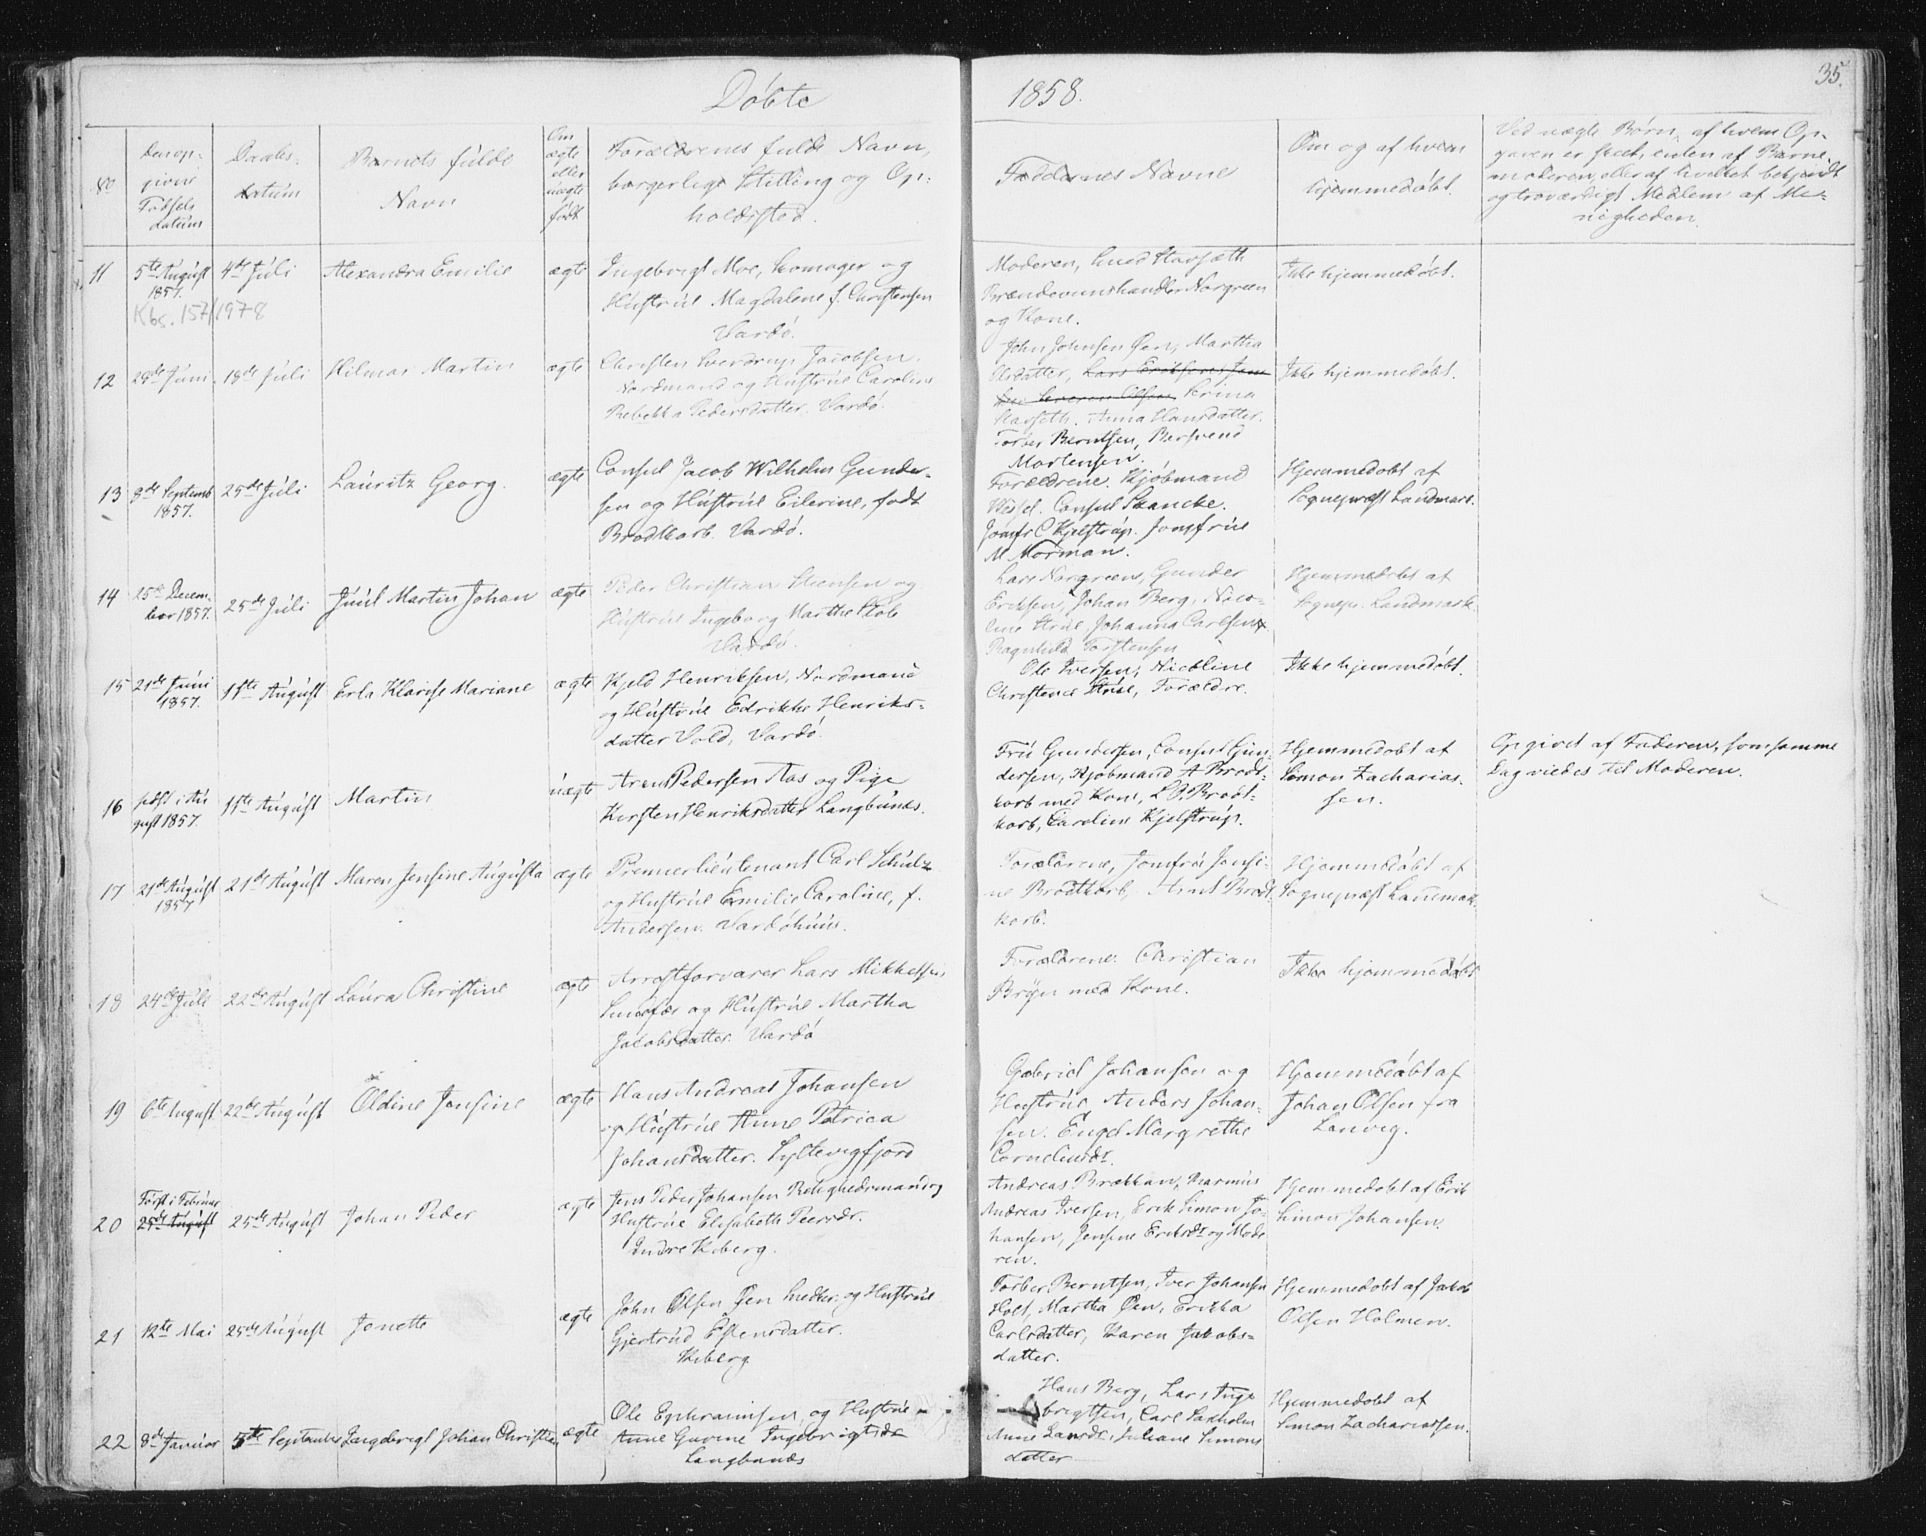 Döbte
1858.
35.
No
Den op-
givne
Födsels
datum
Daabs-
datum
Barnets fulde
Navn
Om
ægte
eller
uægte
födt
Forældrenes fulde Navn,
borgerlige Stilling og Op-
holdssted.
Faddernes Navne
Om og af hvem
hjemmedöbt.
Ved uægte Børn, af hvem Op-
gaven er skeet, enten af Barne-
moderen, eller af hvilket bekjendt
og troværdigt Medlem af Me-
nigheden.
11
5te August
1857.
Kbs. 157/1978
4de Juli
Alexandra Emilie
ægte
Ingebrigt Moe, Skomager og
Hustrue Magdalene f. Christensen
Vardö.
Moderen,
Brændeviinshandler Norgreen
og Kone.
Ikke hjemmedöbt.
12
29de Juni
18de Juli
Hilmar Martin
ægte
Christen Sverdrup Jacobsen
Nordmand og Hustrue Caroline
Rebekka Pedersdatter. Vardö.
John Johnsen Öen, Martha
Olsdatter, Lars Eriksens
Stine
Anna Hansdatter.
Torber Berntsen, Bersvend
Mortensen.
Ikke hjemmedöbt.
13
9de Septemb
1857.
25de Juli
Lauritz Georg.
ægte
Consul Jacob Wilhelm Gunder-
sen og Hustrue Eilerine, født
Brodtkorb. Vardö.
Forældrene. Kjöbmand
Wessel. Consul Skancke.
Jomfr C Kjelstrup. Jomfrue
M Norman.
Hjemmedöbt af
Sognepræst Landmark.
14
25de Decem-
ber 1857.
25de Juli
Juul Martin Johan
ægte
Peder Christian Steensen og
Hustrue Ingeborg Marthe Kols
Vardö.
Lars Norgreen, Gunder
Eriksen, Johan Berg, Nico-
line Strue, Johanna Carlsen
Ragnhild Torstensen
Hjemmedöbt af
Sognepr. Landmark
15
21de Juni
1857.
15te August
Erla Klarise Mariane
ægte
Kjeld Henriksen, Nordmand
og Hustrue Edrikke Henriks-
datter Vold, Vardö.
Ole Iversen, Nicoline
Christence Strue, Forældre.
Ikke hjemmedöbt.
16
födt i Au
gust 1857.
15te August
Martin
uægte
Arent Pedersen Aas og Pige
Kirsten Henriksdatter Langbunes.
Frue Gundersen, Consul Gun-
dersen, Kjöbmand A Brodt-
korb med Kone, L. Brodt-
korb, Caroline Kjelstrup.
Hjemmedöbt af
Simon Zacharias-
sen.
Opgivet af Faderen, som samme
Dag viedes til Moderen.
17
21de August
1857
21de August
Maren Jensine Augusta
ægte
Premierlieutenant Carl Schulz
og Hustrue Emilie Caroline, f.
Andersen. Vardöhuus.
Forældrene, Jomfru Jensi-
ne Brodtkorb, Arnt Brodt-
korb.
Hjemmedöbt af
Sognepræst Landmark.
18
24de Juli
22de August
Laura Christine
ægte
Arrestforvarer Lars Mikkelsen
og Hustrue Martha
Jacobsdatter. Vardö
Forældrene. Christian
Bryn med Kone.
Ikke hjemmedöbt
19
6te August
22de August
Oldine Jensine
ægte
Hans Andreas Johansen
og Hustrue Anne Petrica
Johansdatter. Syltevigfjord
Gabriel Johansen og
Hustrue Anders Johan-
sen. Engel Margrethe
Corneliusdr.
Hjemmedöbt af
Johan Olsen fra
Sandvig.
20
Först i Februar
25de August
25de August
Johan Peder
ægte
Jens Peder Johansen Leilighedsmand og
Hustrue Elisabeth Peersdr.
Indre Kiberg.
Andreas Brækkan, Rasmus
Andreas Iversen, Erik Simon Jo-
hansen, Jensine Eriksdr og Mode
ren.
Hjemmedöbt af Erik
Simon Johansen.
21
12te Mai
25de August
Jonette
ægte
John Olsen Öen og Hustrue
Gjertrud Estensdatter.
Kiberg
Torber Berntsen, Iver Johansen
Holt, Martha Öen, Erikka
Carlsdatter, Karen Jakobs-
datter.
Hjemmedöbt af Jakob
Olsen Holmen.
22
8de Januar
5te September
Ingebregt Johan Christian
ægte
Ole Ephraimsen, og Hustrue
Anne Gurine Ingebrigtsdr
Langbunæs
Hans Berg, Lars Inge
brigtsen, Carl Saxholm
Anne Larsdr, Juliane Simons
datter
Hjemmedöbt af
Simon Zachariassen.